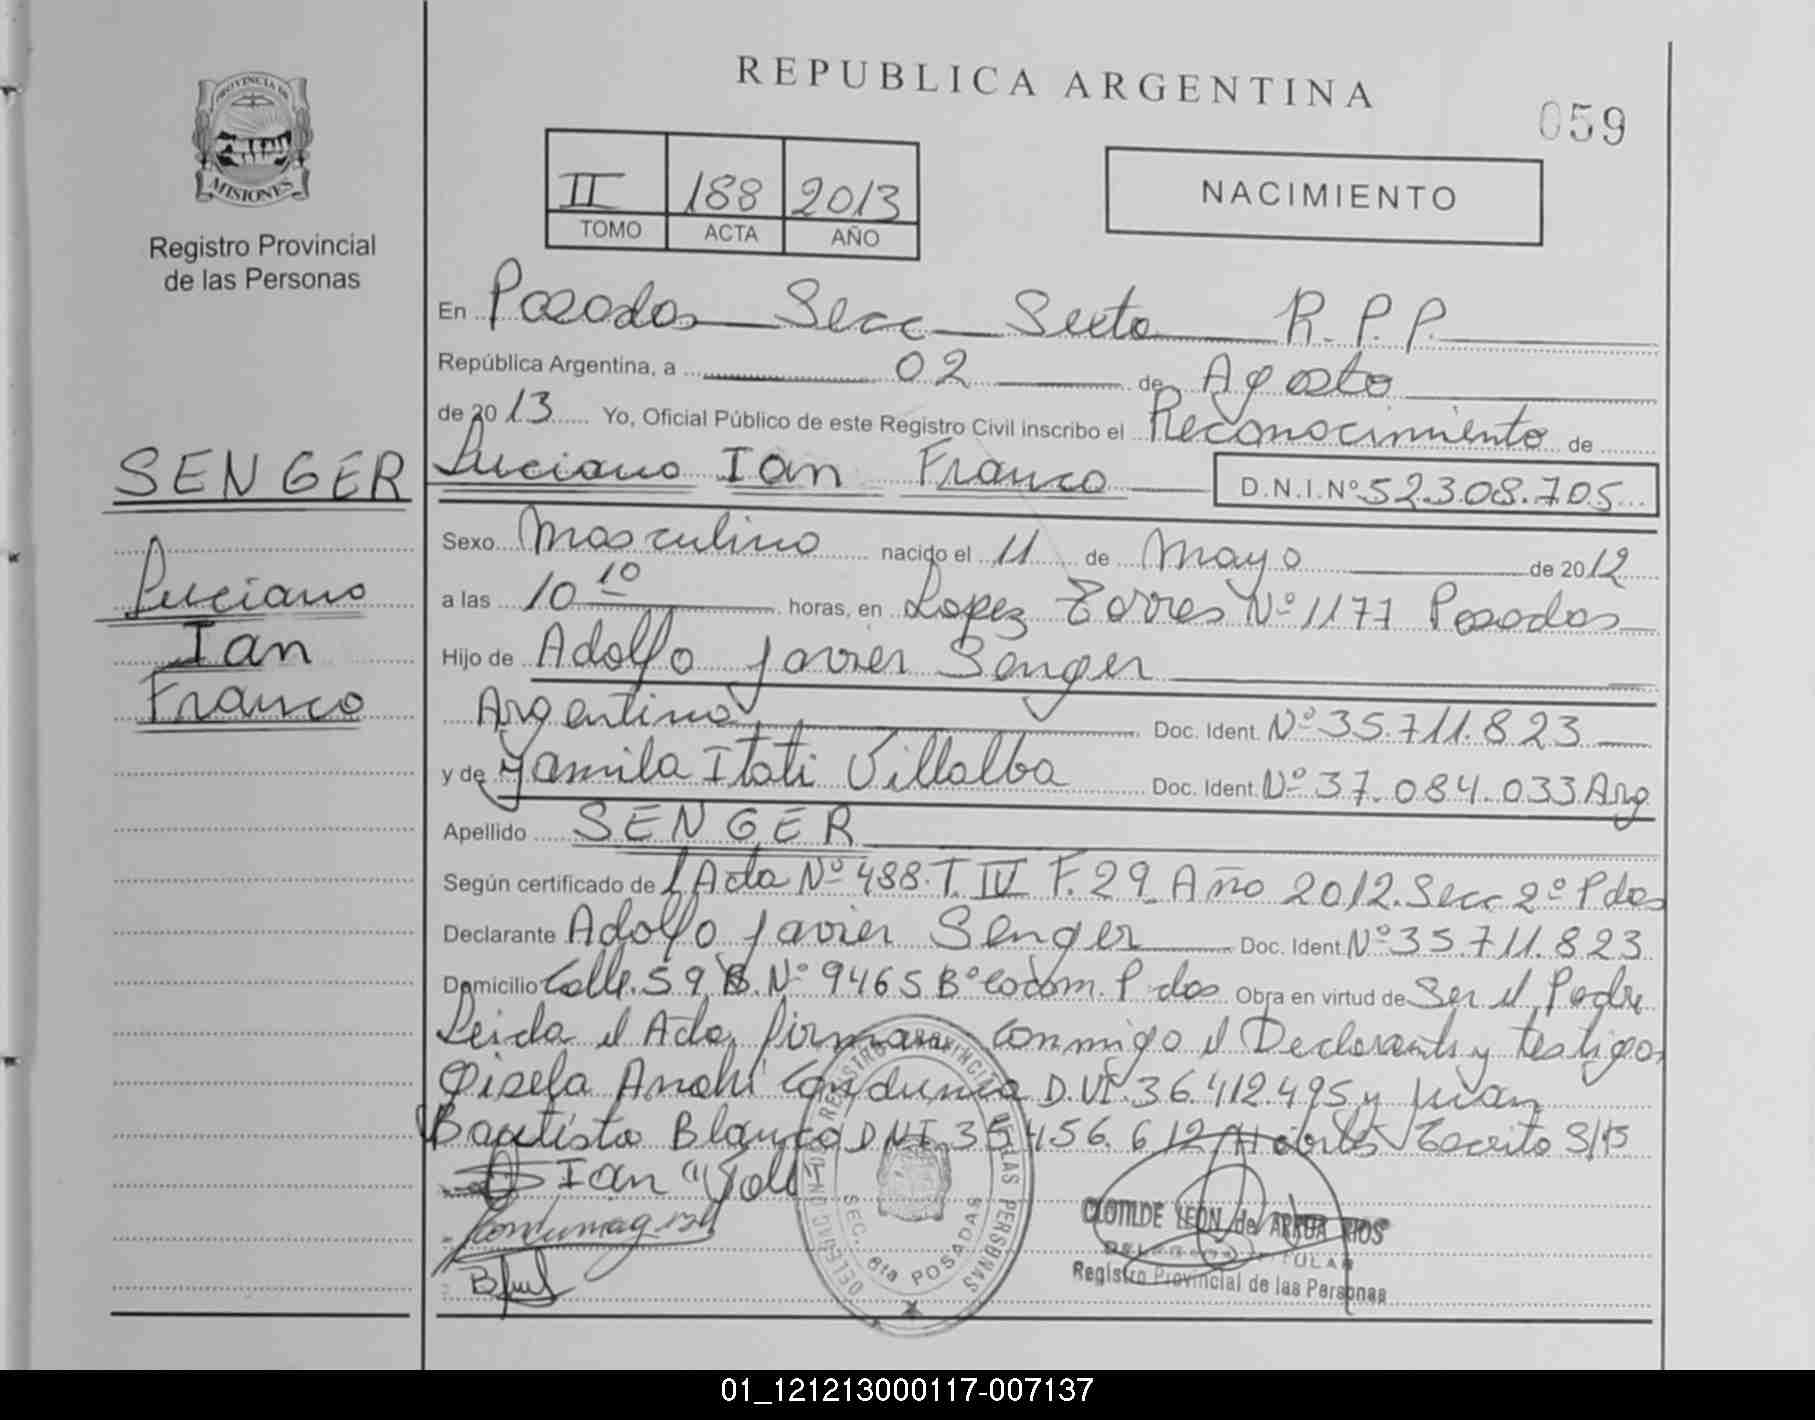 PROVINCIA DE
MISIONES
Registro Provincial
de las Personas
SENGER
Luciano
Ian
Franco
REPUBLICA ARGENTINA
059
II 188 2013
TOMO ACTA AÑO
NACIMIENTO
En Posadas Secc Sexta R.P.P.
República Argentina, a 02 de Agosto
de 2013 Yo, Oficial Público de este Registro Civil inscribo el Reconocimiento de
Luciano Ian Franco D.N.I.Nº 52.308.705
Sexo Masculino nacido el 11 de Mayo de 2012
a las 10 10 horas, en Lopez Torres Nº 1177 Posadas
Hijo de Adolfo Javier Senger
Argentino Doc. Ident. Nº 35.711.823
y de Yamila Itati Villalba Doc. Ident. Nº 37.084.033 Arg
Apellido SENGER
Según certificado de Acta Nº 488.T. IV F. 29 Año 2012. Secc 2º Pdas
Declarante Adolfo Javier Senger Doc. Ident. Nº 35.711.823
Domicilio Calle. 59 B. Nº 9465 Bº Cocom. P das Obra en virtud de Ser el Padre
Leida el Acta, firman Conmigo el Declarante y testigos
Gisela Anahi D.N.I. 36.412.495 y Juan
Bautista Blanco D.N.I. 35.456.612 Escrito S/
Ian
DELEGACION DEL REGISTRO PROVINCIAL DE LAS PERSONAS
SEC. 6ta POSADAS
CLOTILDE LEON de ARRUA RIOS
DELEGADA TITULAR
Registro Provincial de las Personas
01_121213000117-007137